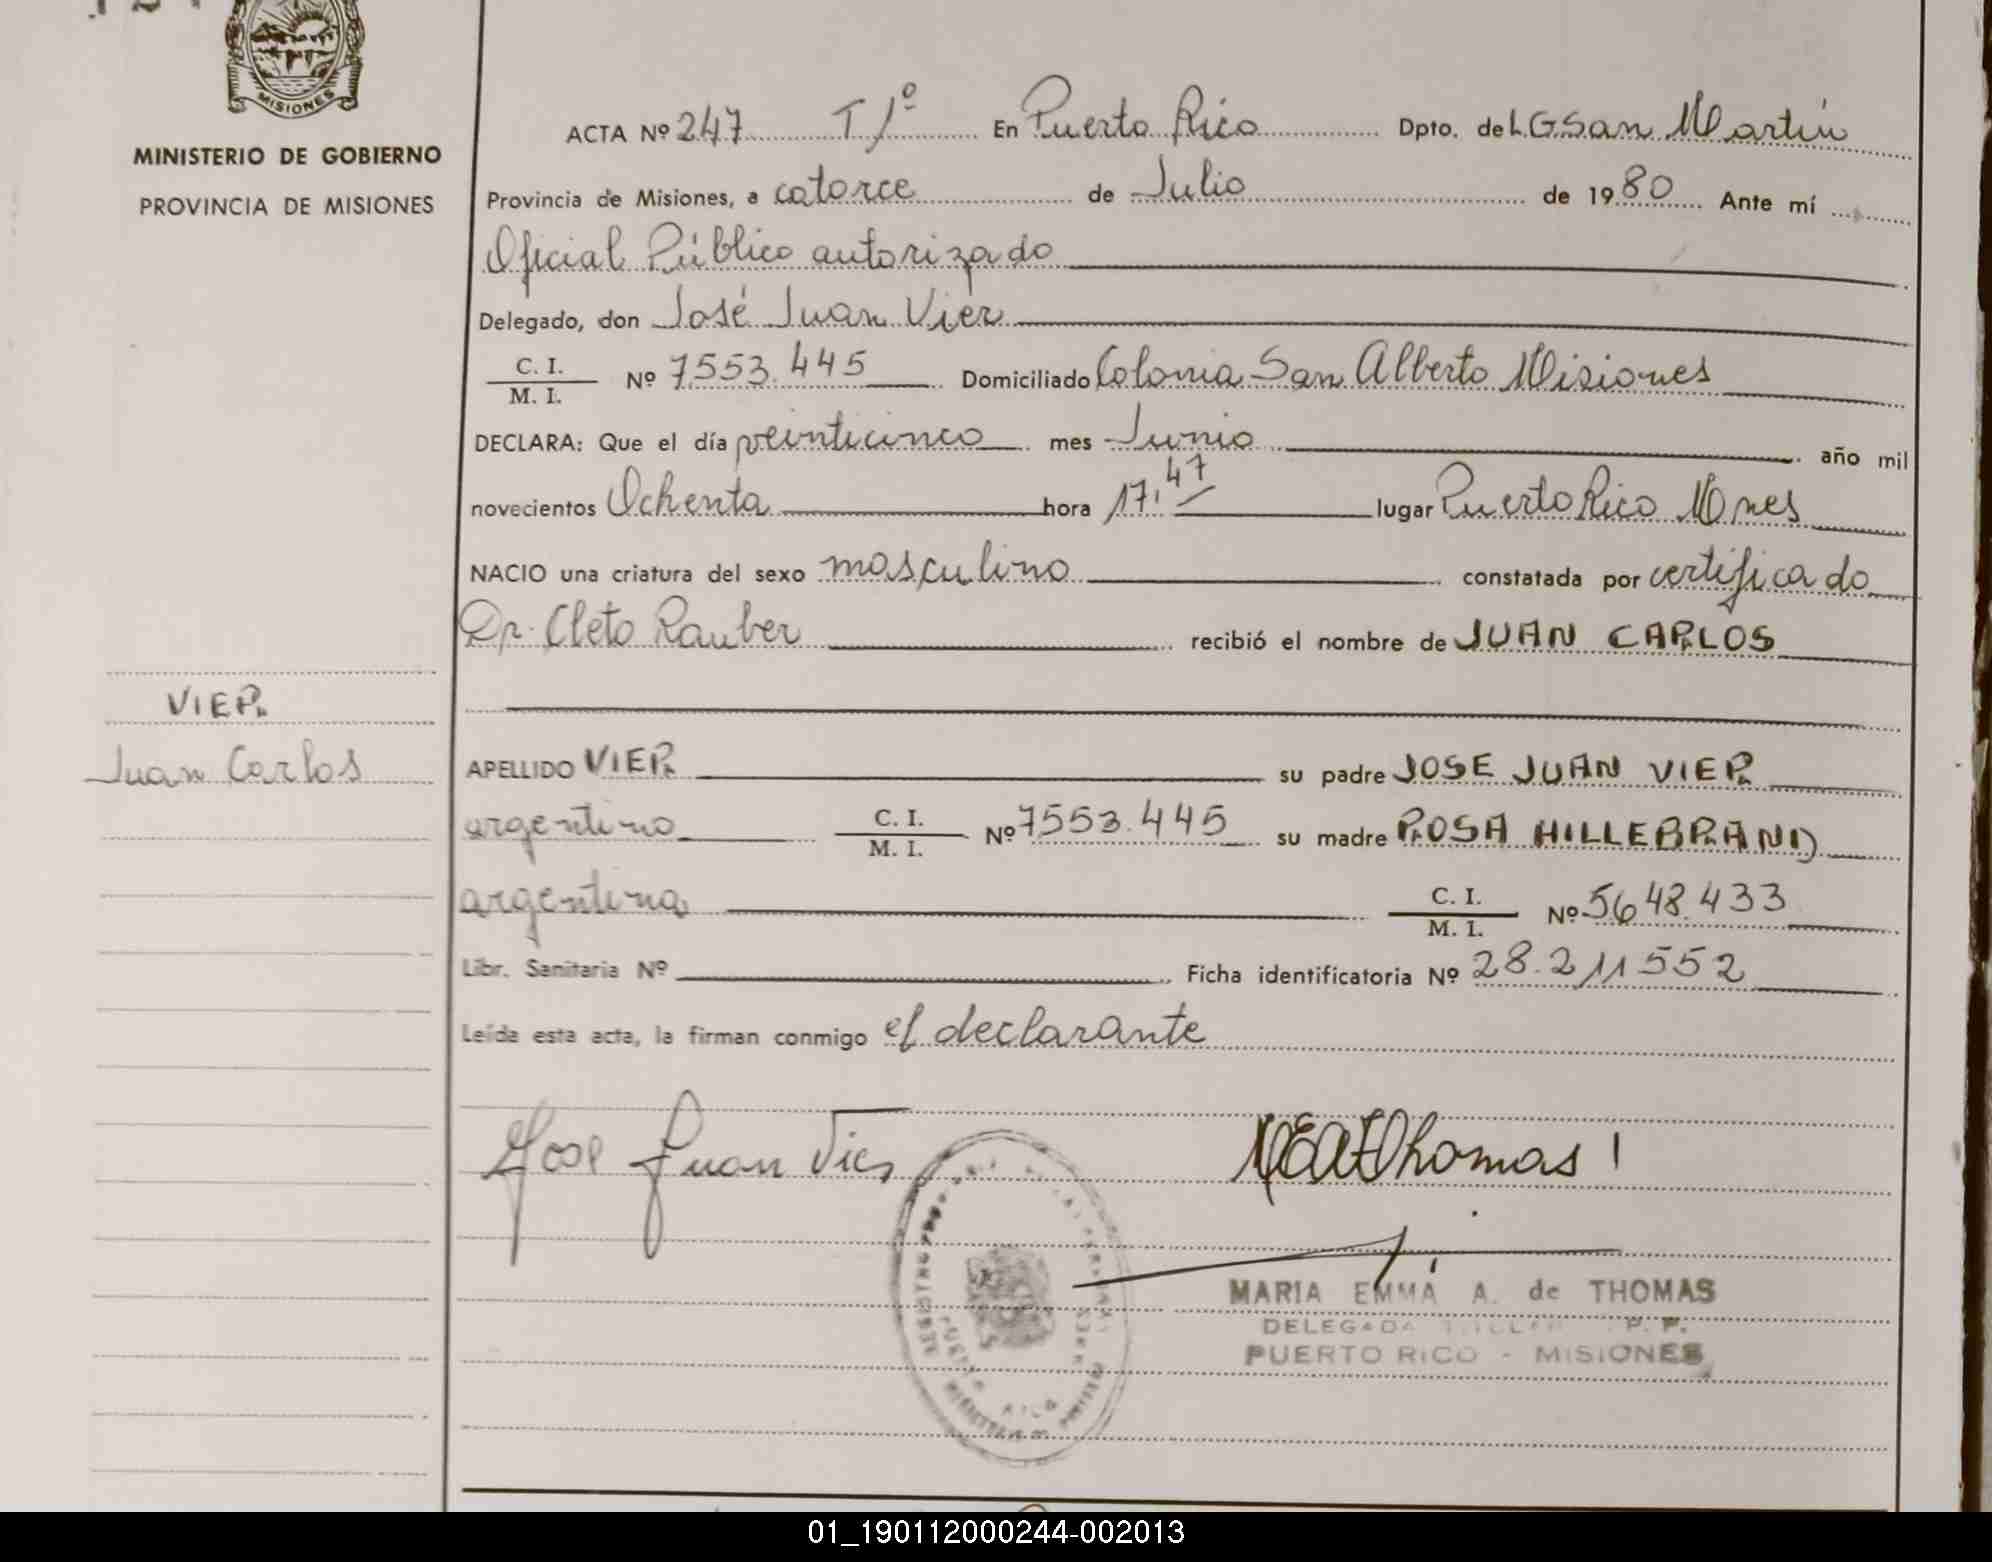 MISIONES
MINISTERIO DE GOBIERNO
PROVINCIA DE MISIONES
VIER
Juan Carlos
ACTA Nº 247 T/1º En Puerto Rico Dpto. de L.G.San Martín
Provincia de Misiones, a catorce de Julio de 1980 Ante mí
Oficial Público autorizado
Delegado, don José Juan Vier
C. I.
M. I. Nº 7553.445 Domiciliado Colonia San Alberto Misiones
DECLARA: Que el día veinticinco mes Junio año mil
novecientos Ochenta hora 17,47 lugar Puerto Rico Mnes
NACIO una criatura del sexo masculino constatada por certificado
Dr. Cleto Rauber recibió el nombre de JUAN CARLOS
APELLIDO VIER su padre JOSE JUAN VIER
argentino C. I.
M. I. Nº 7553.445 su madre ROSA HILLEBRAND
argentina C. I.
M. I. Nº 5648.433
Libr. Sanitaria Nº Ficha identificatoria Nº 28.211552
Leída esta acta, la firman conmigo el declarante
Jose Juan Vier
MEAThomas
MARIA EMMA A. de THOMAS
DELEGADA
PUERTO RICO - MISIONES
01_190112000244-002013